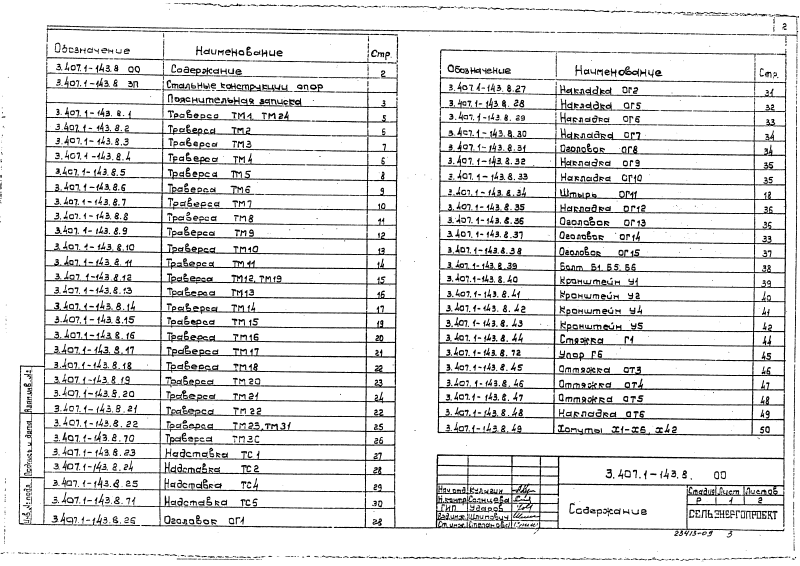 2
Обозначение Наименование Стр.
3.407.1-143.8 00 Содержание 2
3.407.1-143.8 ЗП Стальные конструкции опор
Пояснительная записка 3
3.407.1-143.8.1 Траверса ТМ1, ТМ24 5
3.407.1-143.8.2 Траверса ТМ2 6
3.407.1-143.8.3 Траверса ТМ3 7
3.407.1-143.8.4 Траверса ТМ4 6
3.407.1-143.8.5 Траверса ТМ5 8
3.407.1-143.8.6 Траверса ТМ6 9
3.407.1-143.8.7 Траверса ТМ7 10
3.407.1-143.8.8 Траверса ТМ8 11
3.407.1-143.8.9 Траверса ТМ9 12
3.407.1-143.8.10 Траверса ТМ10 13
3.407.1-143.8.11 Траверса ТМ11 14
3.407.1-143.8.12 Траверса ТМ12, ТМ19 15
3.407.1-143.8.13 Траверса ТМ13 16
3.407.1-143.8.14 Траверса ТМ14 17
3.407.1-143.8.15 Траверса ТМ15 19
3.407.1-143.8.16 Траверса ТМ16 20
3.407.1-143.8.17 Траверса ТМ17 21
3.407.1-143.8.18 Траверса ТМ18 22
3.407.1-143.8.19 Траверса ТМ20 23
3.407.1-143.8.20 Траверса ТМ21 24
3.407.1-143.8.21 Траверса ТМ22 22
3.407.1-143.8.22 Траверса ТМ23, ТМ31 25
3.407.1-143.8.70 Траверса ТМ3С 26
3.407.1-143.8.23 Надставка ТС1 27
3.407.1-143.8.24 Надставка ТС2 28
3.407.1-143.8.25 Надставка ТС4 29
3.407.1-143.8.71 Надставка ТС5 30
3.407.1-143.8.26 Оголовок ОГ1 28
Обозначение Наименование Стр.
3.407.1-143.8.27 Накладка ОГ2 31
3.407.1-143.8.28 Накладка ОГ5 32
3.407.1-143.8.29 Накладка ОГ6 33
3.407.1-143.8.30 Накладка ОГ7 34
3.407.1-143.8.31 Оголовок ОГ8 34
3.407.1-143.8.32 Накладка ОГ9 35
3.407.1-143.8.33 Накладка ОГ10 35
3.407.1-143.8.34 Штырь ОГ11 18
3.407.1-143.8.35 Накладка ОГ12 36
3.407.1-143.8.36 Оголовок ОГ13 36
3.407.1-143.8.37 Оголовок ОГ14 33
3.407.1-143.8.38 Оголовок ОГ15 37
3.407.1-143.8.39 Болт Б1 Б5, Б6 38
3.407.1-143.8.40 Кронштейн У1 39
3.407.1-143.8.41 Кронштейн У2 40
3.407.1-143.8.42 Кронштейн У4 41
3.407.1-143.8.43 Кронштейн У5 42
3.407.1-143.8.44 Стяжка Г1 44
3.407.1-143.8.72 Упор Г6 45
3.407.1-143.8.45 Оттяжка ОТ3 46
3.407.1-143.8.46 Оттяжка ОТ4 47
3.407.1-143.8.47 Оттяжка ОТ5 48
3.407.1-143.8.48 Накладка ОТ6 49
3.407.1-143.8.49 Хомуты Х1-Х6, Х42 50
3.407.1-143.8. 00
Нач отд Кулыгин
Н.контр Солнцева
ГИП Ударов
Содержание
Стадия Лист Листов
Р 1 2
СЕЛЬЭНЕРГОПРОЕКТ
23413-09 3
Подпись и дата